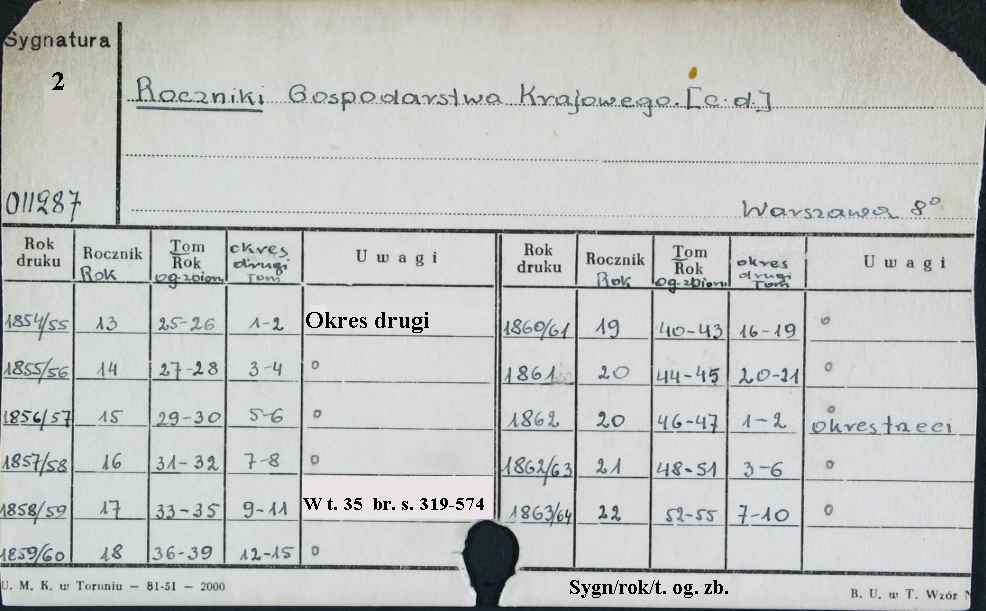 Sygnatura
2
Roczniki Gospodarstwa Krajowego. [c.d.]
011287
Warszawa 8°
Rok druku | Rocznik Rok | Tom Rok og. zbioru | okres drugi Tom | Uwagi | Rok druku | Rocznik Rok | Tom Rok og. zbioru | okres drugi Tom | Uwagi
1854/55 | 13 | 25-26 | 1-2 | Okres drugi | 1860/61 | 19 | 40-43 | 16-19 | o
1855/56 | 14 | 27-28 | 3-4 | o | 1861 | 20 | 44-45 | 20-21 | o
1856/57 | 15 | 29-30 | 5-6 | o | 1862 | 20 | 46-47 | 1-2 | o okres trzeci
1857/58 | 16 | 31-32 | 7-8 | o | 1862/63 | 21 | 48-51 | 3-6 | o
1858/59 | 17 | 33-35 | 9-11 | W t. 35 br. s. 319-574 | 1863/64 | 22 | 52-55 | 7-10 | o
1859/60 | 18 | 36-39 | 12-15 | o
U. M. K. w Toruniu — 81-51 — 2000
Sygn/rok/t. og. zb.
B. U. w T. Wzór